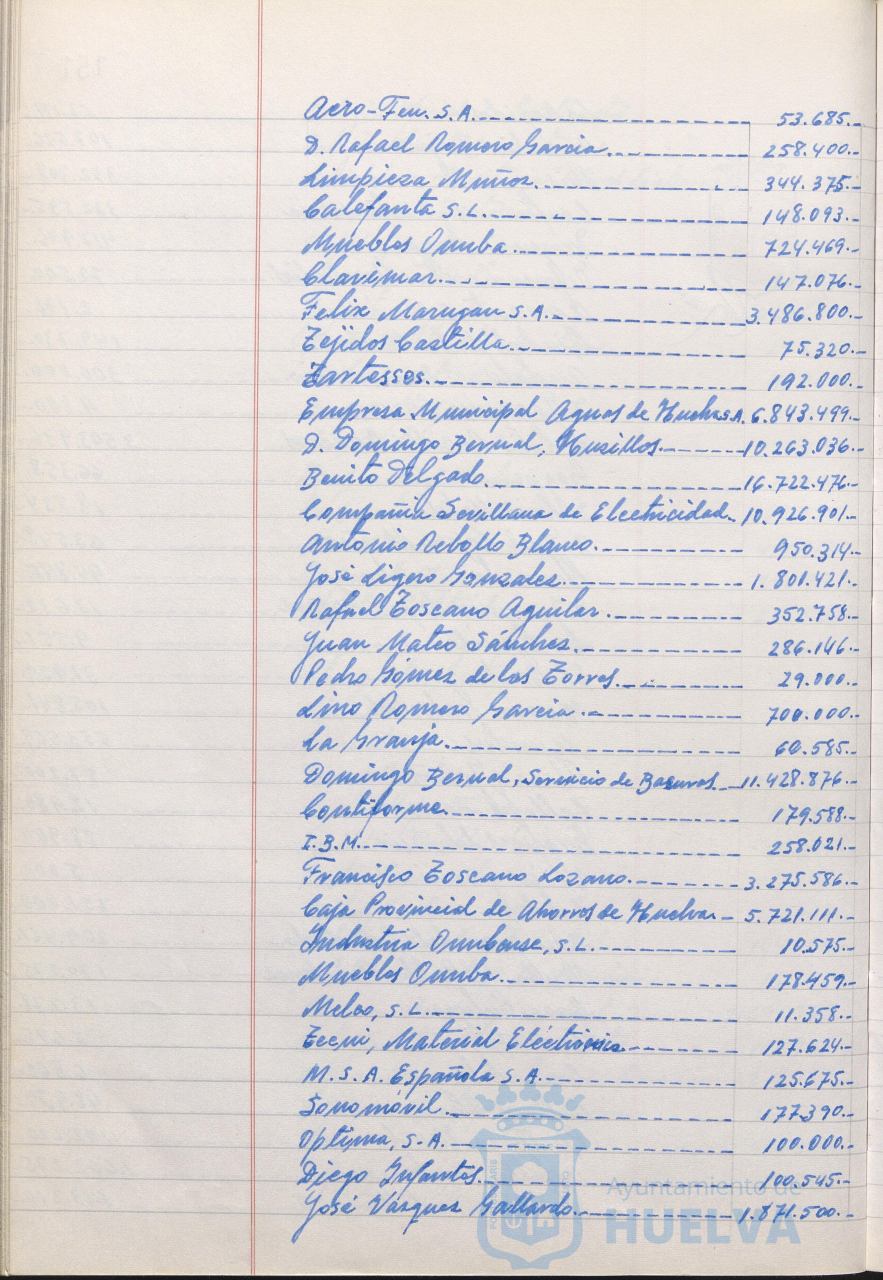 Aero-Feu. S.A. 53.685.-
D. Rafael Romero Garcia 258.400.-
Limpieza Muñoz 344.375.-
Calefanta S.L. 148.093.-
Muebles Onuba 724.469.-
Clavimar 147.076.-
Felix Marugan S.A. 3.486.800.-
Tejidos Castilla 75.320.-
Tartessos 192.000.-
Empresa Municipal Aguas de Huelva S.A. 6.843.499.-
D. Domingo Bernal, Husillos 10.263.036.-
Benito Delgado 16.722.476.-
Compañia Sevillana de Electricidad 10.926.901.-
Antonio Rebollo Blanco 950.314.-
José Ligero Gonzalez 1.801.421.-
Rafael Toscano Aguilar 352.758.-
Juan Mateo Sánchez 286.146.-
Pedro Gómez de los Torros 29.000.-
Lino Romero Garcia 700.000.-
La Granja 60.585.-
Domingo Bernal, Servicio de Basuras 11.428.876.-
Contiforme 179.588.-
I.B.M. 258.021.-
Francisco Toscano Lozano 3.275.586.-
Caja Provincial de Ahorros de Huelva 5.721.111.-
Industria Onubense, S.L. 10.575.-
Muebles Onuba 178.459.-
Melco, S.L. 11.358.-
Tecni, Material Eléctrónico 127.624.-
M.S.A. Española S.A. 125.675.-
Sonomóvil 177.390.-
Optima, S.A. 100.000.-
Diego Infantes 100.545.-
José Vazquez Gallardo 1.871.500.-
Ayuntamiento de
HUELVA